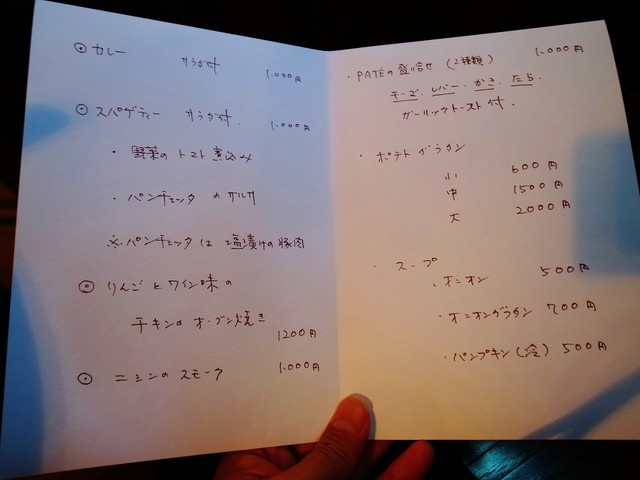 ◉ カレー サラダ付 1.000円
◉ スパゲティー サラダ付. 1.000円
・ 野菜のトマト煮込み
・ パンチェッタ の サルサ
※.パンチェッタ は 塩漬けの豚肉
◉ りんごとワイン味の
チキンの オーブン焼き
1200円
◉ ニシンの スモーク 1.000円
・PATÉの盛り合せ (2種類) 1.000円
チーズ. レバー. かき. たら
ガーリックトースト付.
・ ポテトグラタン
小 600円
中 1500円
大 2000円
・ スープ
・オニオン 500円
・オニオングラタン 700円
・パンプキン(冷) 500円